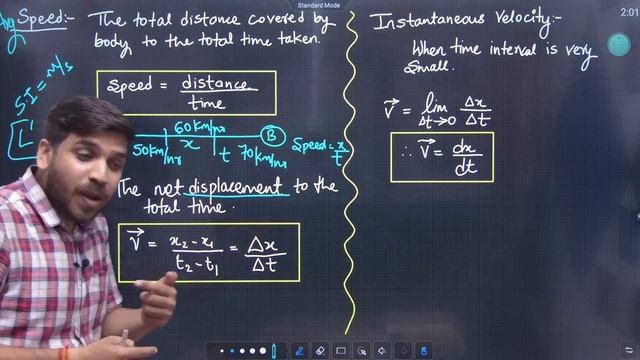 Standard Mode
2:01
Avg Speed:- The total distance covered by
body to the total time taken.
S.I = m/s
Speed = distance
time
60km/hr
B
50km/hr
x
t
70km/hr
Speed = x/t
The net displacement to the
total time.
V = x₂ - x₁ / t₂ - t₁ = Δx / Δt
Instantaneous Velocity:-
When time interval is very
small.
V = lim Δx / Δt
Δt→0
∴ V = dx / dt